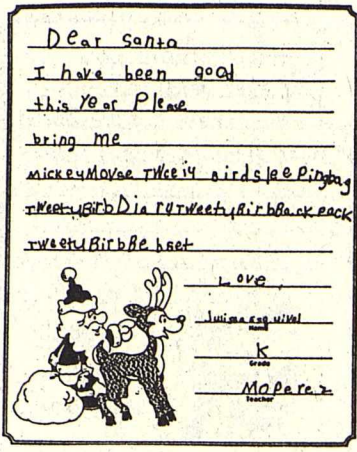 Dear Santa
I have been good
this Year Please
bring me
mickeyMovse TWeeiy BirdsleePingbag
TWeetyBirbDiaryTweetyBirbBackpack
TweetyBirbBe bset
Love,
luimaesquivel
Name
K
Grade
MoPerez
Teacher